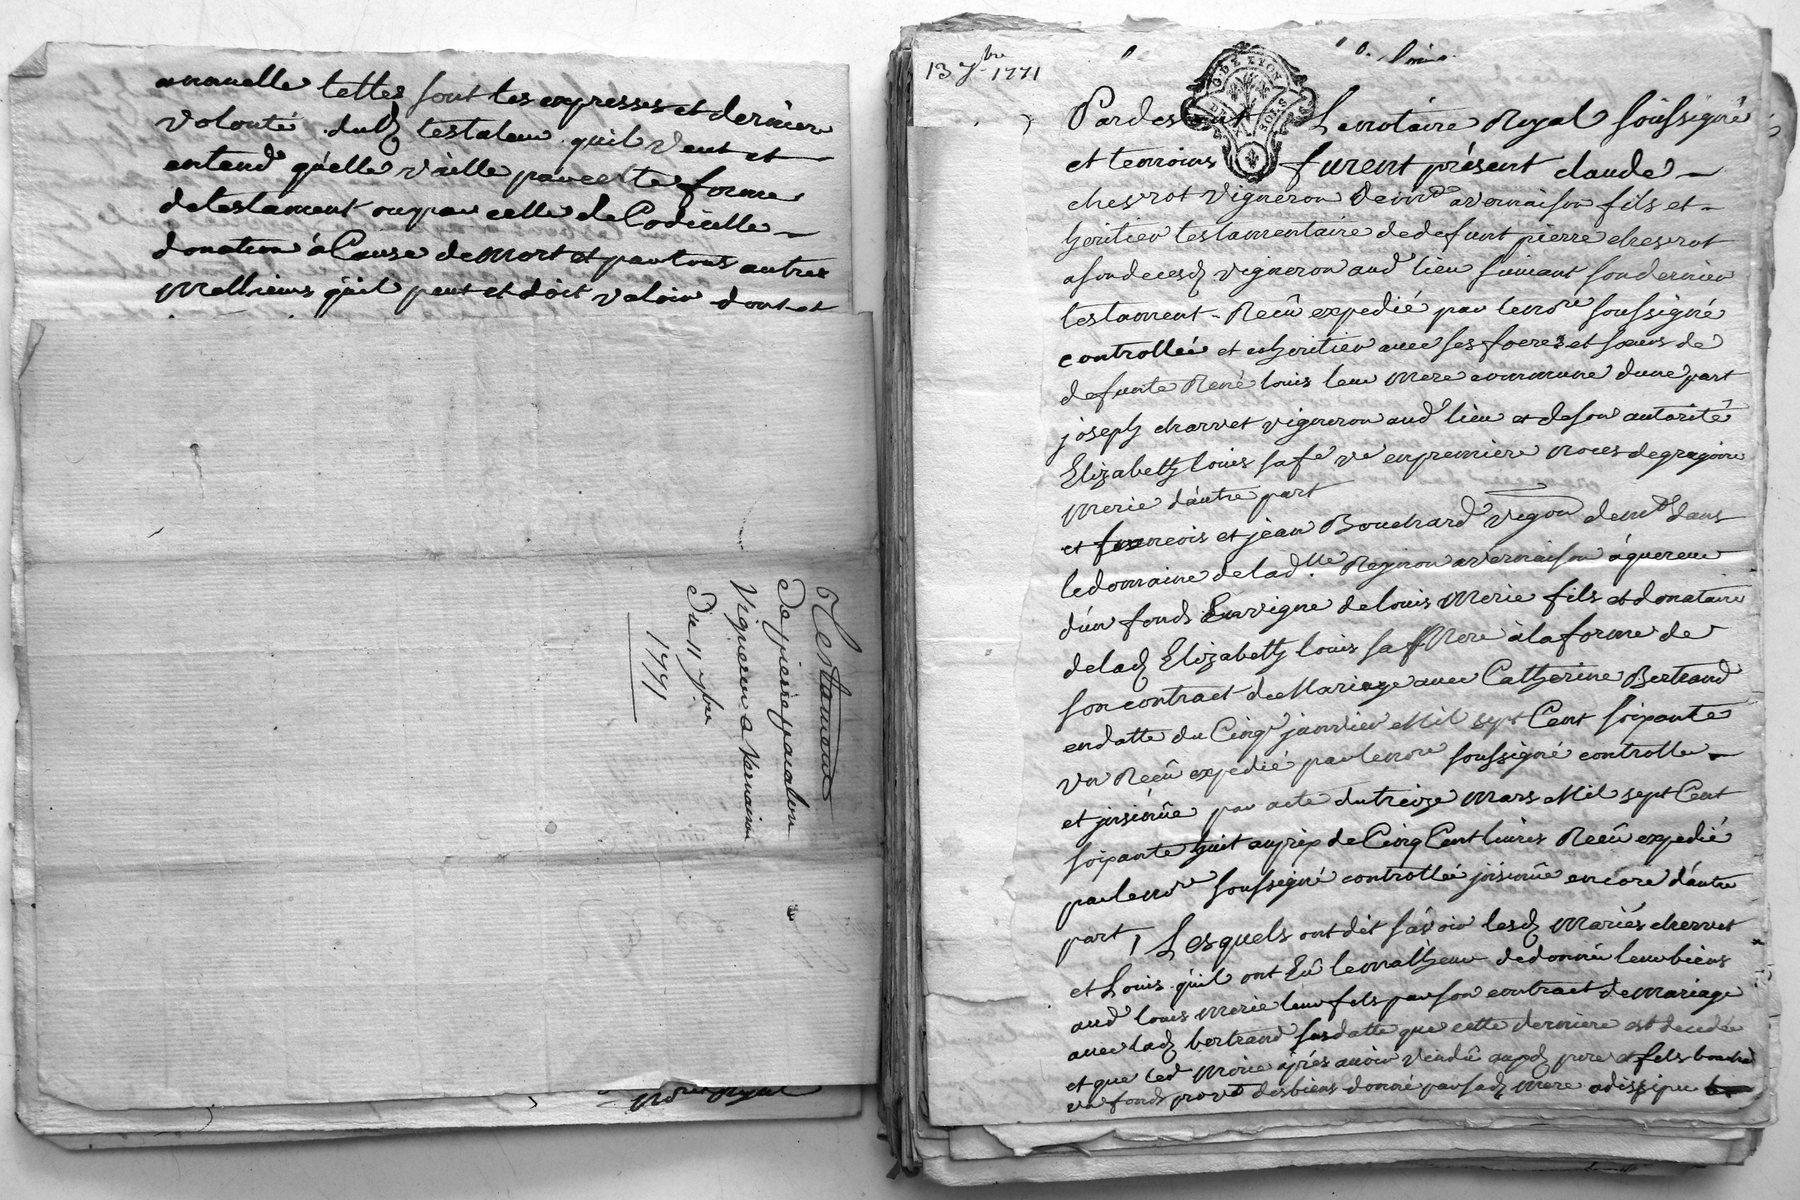 annuelle telles sont les expresses et derniere
volonté dud testateur quil veut et
entend quelle vaille par cette forme
de testament ou par celle de Codicille
donation à Cause de mort et par tous autres
Melliеurs quil peut et doit valoir dont et
Testament
de pierre
Vigneron a Vernaison
Du 11 7bre
1771
Nore Royal
13 7bre 1771
G. DE LYON
2 SOLS
Pardevant Le notaire Royal soussigné
et temoins furent présent claude
chevrot vigneron demt a vernaison fils et
heritier testamentaire de defunt pierre chevrot
a son deces vigneron aud lieu suivant son dernier
testament Reçû expedié par le nore soussigné
controllée et coheritier avec ses freres et soeurs de
defunte René louis leur mere commune dune part
joseph charvet vigneron aud lieu et de son autorité
Elizabeth louis sa fe ve en premiere noces de gregoire
Merie dautre part
et francois et jean Bouchard vigon demt dans
le domaine de lad lle Reynon a vernaison aquereur
dun fond En vigne de louis Merie fils et donataire
de lad Elizabeth louis sa Mere à la forme de
son contract de Mariage avec Catherine Bertrand
en datte du Cinq janvier Mil sept Cent soixante
un Reçû expedié par le nore soussigné controlle
et jnsinûe par acte du treize Mars Mil sept Cent
soixante huit au prix de Cinq Cent livres Reçû expedié
par le nore soussigné controllée jnsinûe encore dautre
part, Lesquels ont dit savoir lesd Mariés charvet
et Louis quil ont Eû le malheur de donner leur biens
aud louis Merie leur fils par son contract de Mariage
avec lad bertrand susdatte que cette derniere est decedée
et que led Merie après avoir vendû auxd pere et fils bouchard
un fond provt des biens donné par sad mere a dissipu